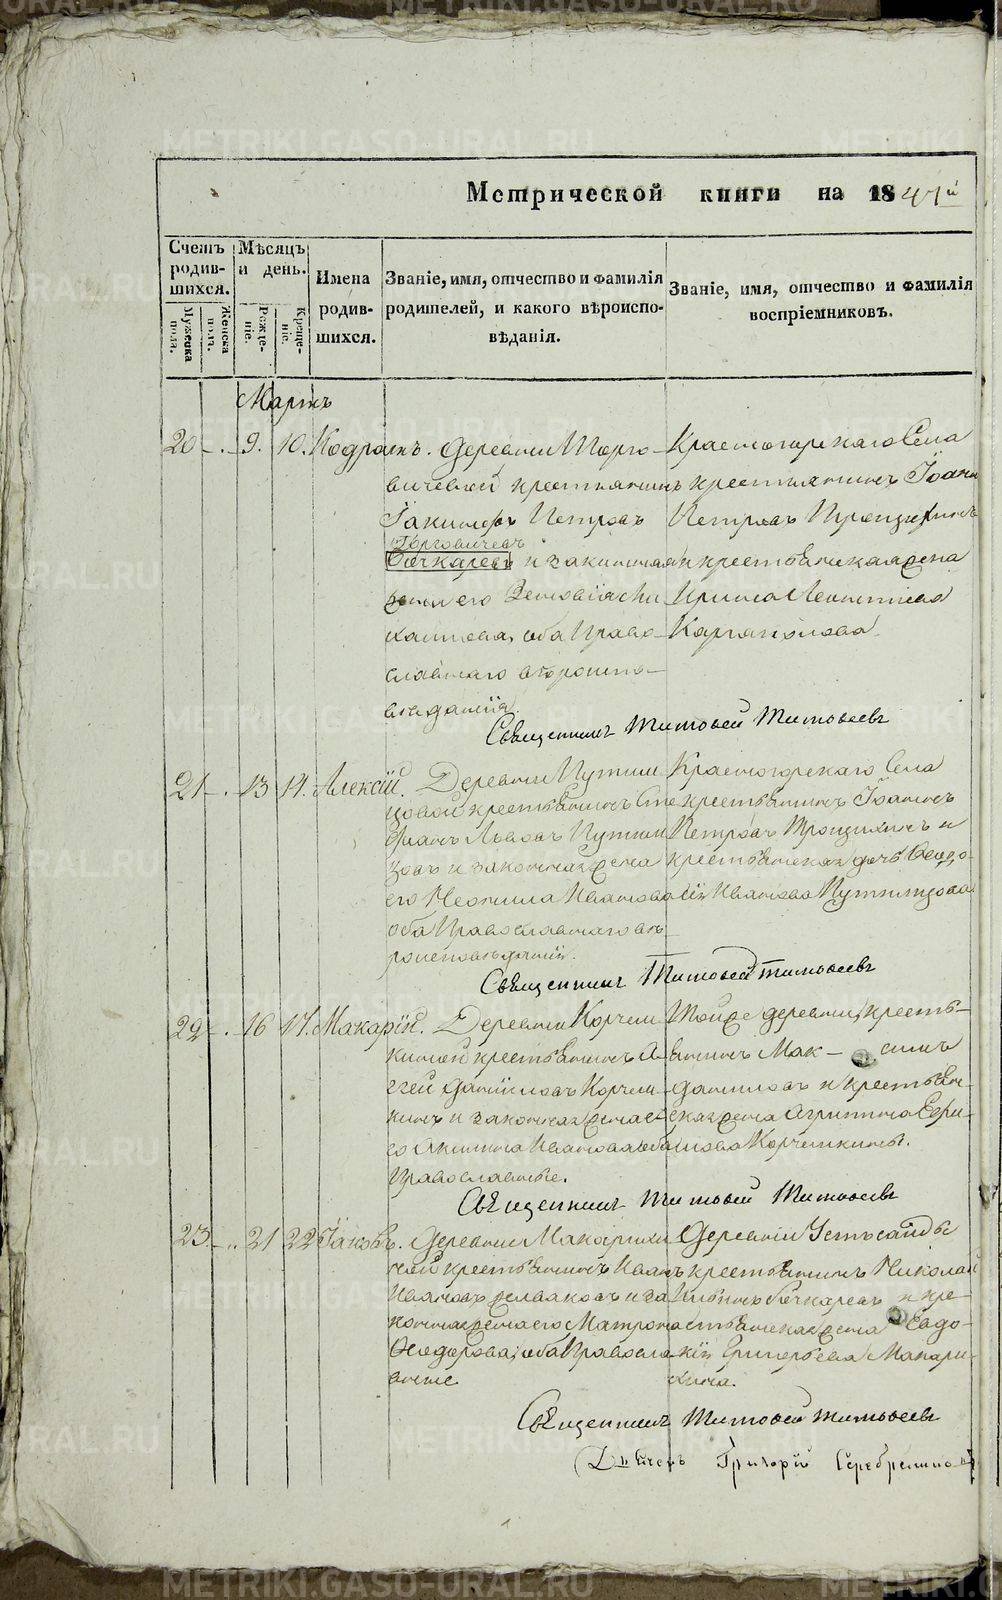 METRIKI.GASO-URAL.RU
Метрической книги на 1847й
Счетъ родившихся.
Мѣсяцъ и день.
Имена родившихся.
Званіе, имя, отчество и фамилія родителей, и какого вѣроисповѣданія.
Званіе, имя, отчество и фамилія воспріемниковъ.
Мужеска пола.
Женска пола.
Рожденіе.
Крещеніе.
Мартъ
20 - . 9. 10. Кодратъ.
Деревни Торго-
вичевой крестьянинъ
Іакимфъ Петровъ
Торговичевъ
Бочкаревъ и законная
жена его Зеновія
оба Право-
славнаго вѣроиспо-
вѣданія.
Красногорскаго Села
крестьянинъ Іоаннъ
Петровъ Трощихинъ
и крестьянская жена
Ирина Леонтьева
Священникъ Тимофей Тимофеевъ
21 - . 13 14. Алексій.
Деревни Путими-
цовой крестьянинъ Сте-
фанъ Львовъ Путими-
цовъ и законная жена
его Неонила Иванова
оба Православнаго вѣ-
роисповѣданія.
Красногорскаго Села
крестьянинъ Іоаннъ
Петровъ Трощихинъ и
крестьянская дочь Феодо-
сія Иванова Путимцова
Священникъ Тимофей Тимофеевъ
22 - . 16 17. Макарій.
Деревни Корчем-
киной крестьянинъ А-
гей Даниловъ Корчем-
кинъ и законная жена е-
го Акилина Иванова оба
Православные.
Той же деревни кресть-
янинъ Мак- симъ
Даниловъ и крестьян-
ская жена Агрипина Ефи-
мова Корчемкины.
Священникъ Тимофей Тимофеевъ
23 - .. 21 22 Іаковъ.
Деревни Макарихи-
ной крестьянинъ Иванъ
Ивановъ и за-
конная жена его Матрона
Феодорова, оба Правосла-
вные
Деревни Устьсайды
крестьянинъ Николай
Ильинъ Бочкаревъ и кре-
стьянская жена Евдо-
кія Григорьева Макари-
хина.
Священникъ Тимофей Тимофеевъ
Дьяченъ Григорій Серебрениковъ